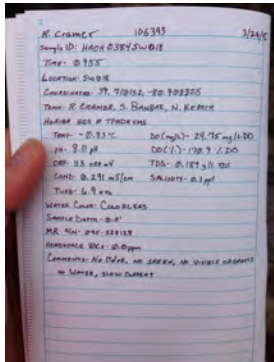 R. Cramer 106393 3/24/15
Sample ID: HAOH 0384SW018
Time: 0955
Location: SW018
Coordinates: 39.710152, -80.903325
Team: R. Cramer, S. N.
Horiba
Temp: -0.33°C DO(mg/L)- 24.75 mg/L DO
pH- 8.11 pH DO(%)- 170.9 % DO
ORP- 113 mV TDS- 0.189 g/L TDS
Cond- 0.291 mS/cm Salinity- 0.1 ppt
Turb- 6.9
Water Color- Colorless
Sample Depth- 0.5'
MR
Headspace VOCs- 0.0ppm
Comments- No Odor, no sheen, no visible organics
in Water, slow current